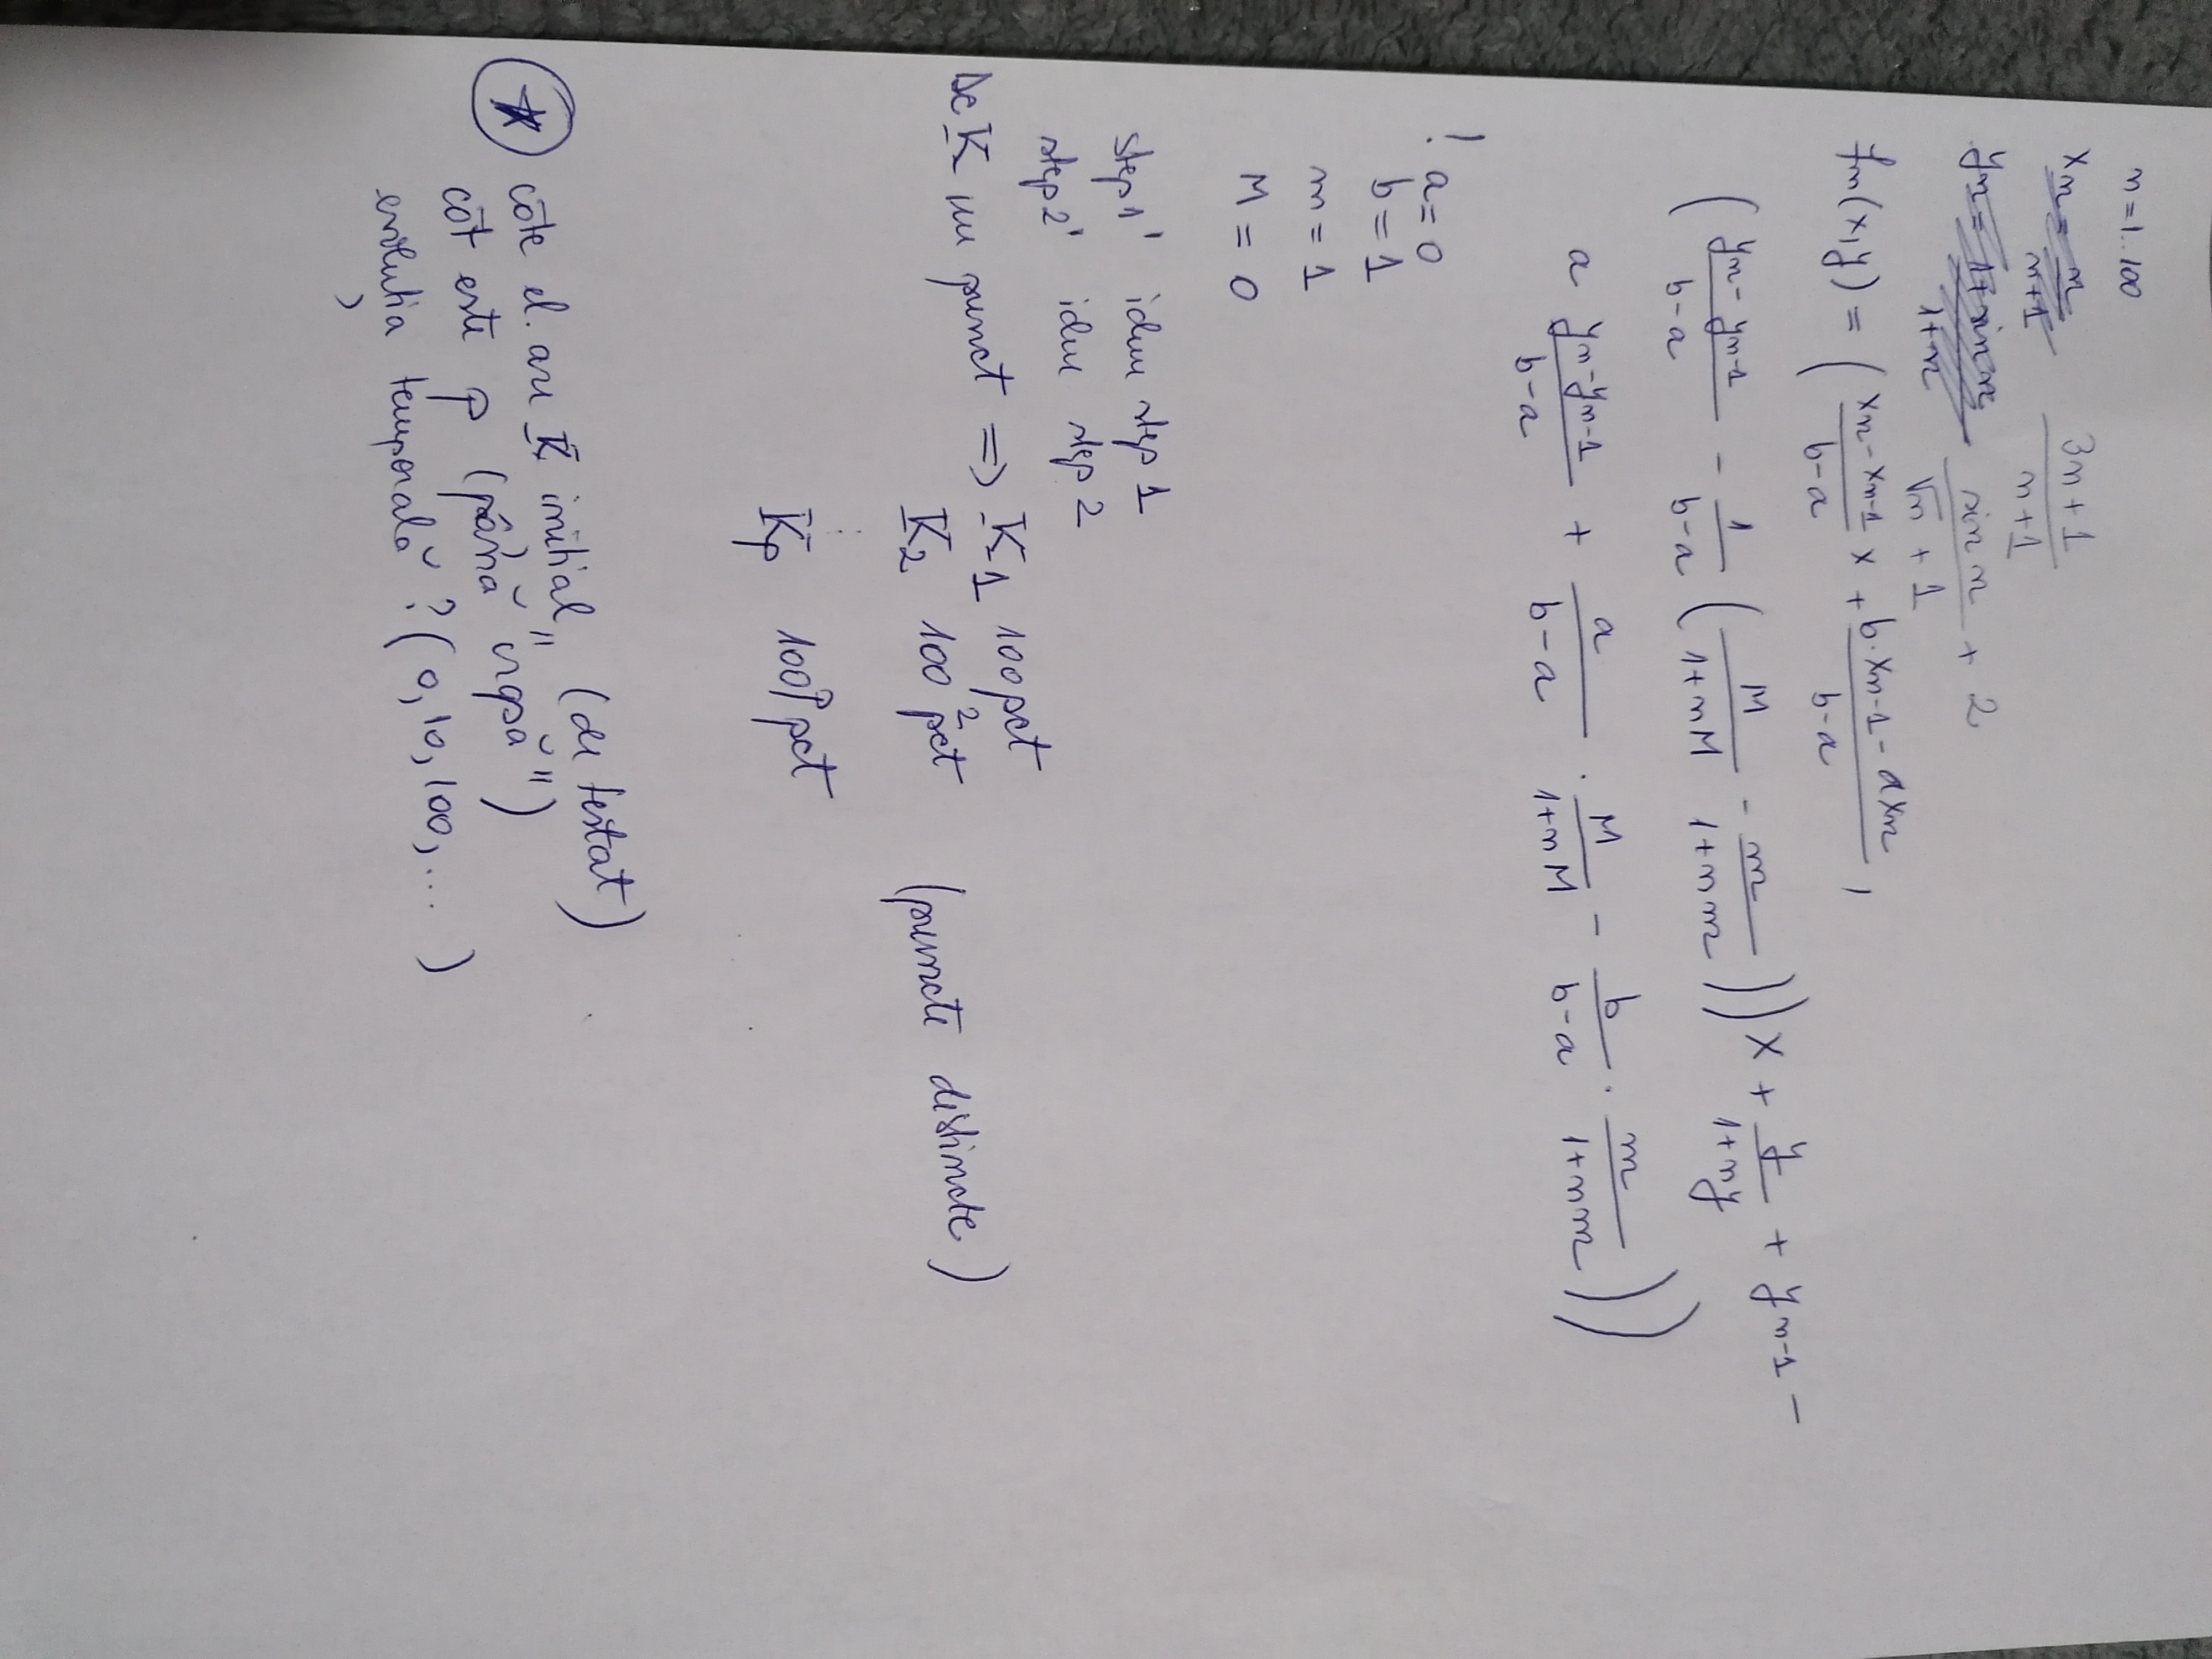 n = 1..100
xn = n/(n+1) (3n+1)/(n+1)
yn = (1+sin n)/(1+n) sin n/(√n + 1) + 2
fn(x,y) = ( (xn - xn-1)/(b-a) x + (b·xn-1 - a xn)/(b-a) ,
( (yn - yn-1)/(b-a) - 1/(b-a) ( M/(1+nM) - m/(1+nm) ) ) x + y/(1+ny) + yn-1 -
a (yn-yn-1)/(b-a) + a/(b-a) · M/(1+nM) - b/(b-a) · m/(1+nm) ) )
! a = 0
b = 1
m = 1
M = 0
step1' idem step 1
step2' idem step 2
Dc K un punct => K1 100 pct
K2 100² pct (puncte distincte)
⋮
Kp 100^p pct
* câte el. are K inițial (de testat)
cât este p (până "crapă")
evoluția temporală? (0, 10, 100, ... )